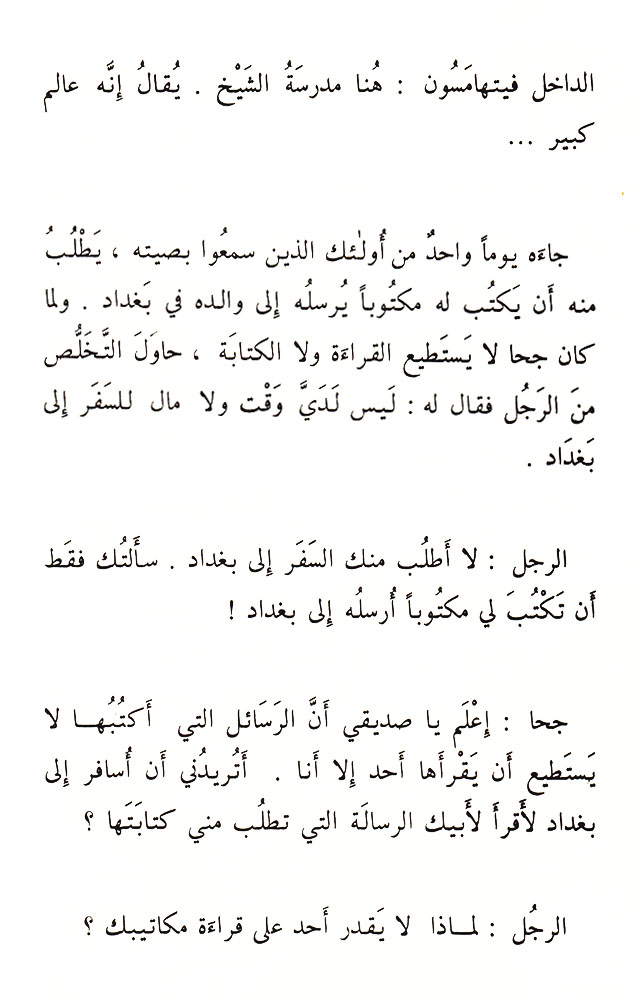 الداخل فيتهامَسُون : هُنا مدرسَةُ الشَيْخ . يُقالُ إِنَّه عالم
كبير ...
جاءَه يوماً واحدٌ من أُولٰئك الذين سمعُوا بصيته ، يَطْلُبُ
منه أَن يَكتُب له مكتُوباً يُرسلُه إِلى والده في بَغداد . ولما
كان جحا لا يَستَطيع القراءَة ولا الكتابَة ، حاوَلَ التَّخَلُّص
منَ الرَجُل فقال له : لَيس لَدَيَّ وَقْت ولا مال للسَفَر إِلى
بَغدَاد .
الرجل : لا أَطلُب منك السَفَر إِلى بغداد . سأَلتُك فقَط
أَن تَكْتُبَ لي مكتُوباً أُرسلُه إِلى بغداد !
جحا : إِعْلَم يا صديقي أَنَّ الرَسَائل التي أَكتُبُهـا لا
يَستَطيع أَن يَقْرأَها أَحد إِلا أَنا . أَتُريدُني أَن أُسافر إِلى
بغداد لأَقرأَ لأَبيك الرسالَة التي تطلُب مني كتابَتَها ؟
الرجُل : لمـاذا لا يَقدر أَحد على قراءَة مكاتيبك ؟